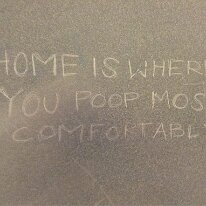 HOME IS WHER
YOU POOP MOS
COMFORTABL